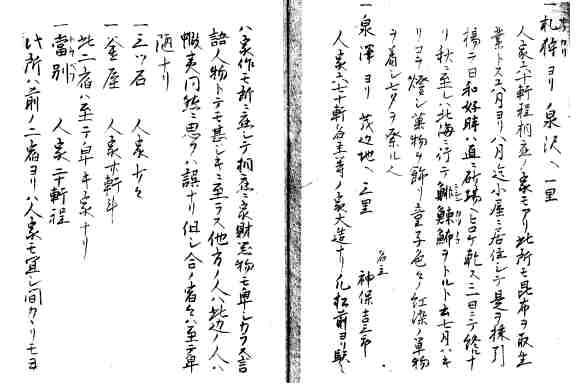 一札狩ヨリ泉沢ヘ一里
人家六七十軒程相応ノ家モアリ此所モ昆布ヲ取生
業トス六月ヨリ八月迄小屋ニ居住シテ是ヲ採引
揚テ日和好時ハ直ニ研場ヒロケ乾ス三日ニテ終ルナ
リ秋ニ至レハ北海ニ行テ鯡鰊鰤ヲトルト云七月ハキ
リコヲ燈シ菓物ヲ飾リ童子色々ノ紅染ノ単物
ヲ着シ七夕ヲ祭ル
一泉澤ヨリ茂辺地ヘ三里
名主 神保吉三郎
人家六七十軒名主等ノ家大造ナリ凡松前ヨリ
ハ家作モ所ニ応シテ相応ニ家財器物モ卑シカラス言
語人物トテモ甚シキニ至ラス他方ノ人ハ此辺ノ人ハ
蝦夷同然ニ思フハ誤ナリ但シ合ノ者々ハ至テ卑
陋ナリ
一三ツ石 人家少々
一釜屋 人家廿軒斗
此二宿ハ至テ卑キ家ナリ
一當別 人家二十軒程
此所ハ前ノ二宿ヨリハ人家モ宜シ間カリモヨ